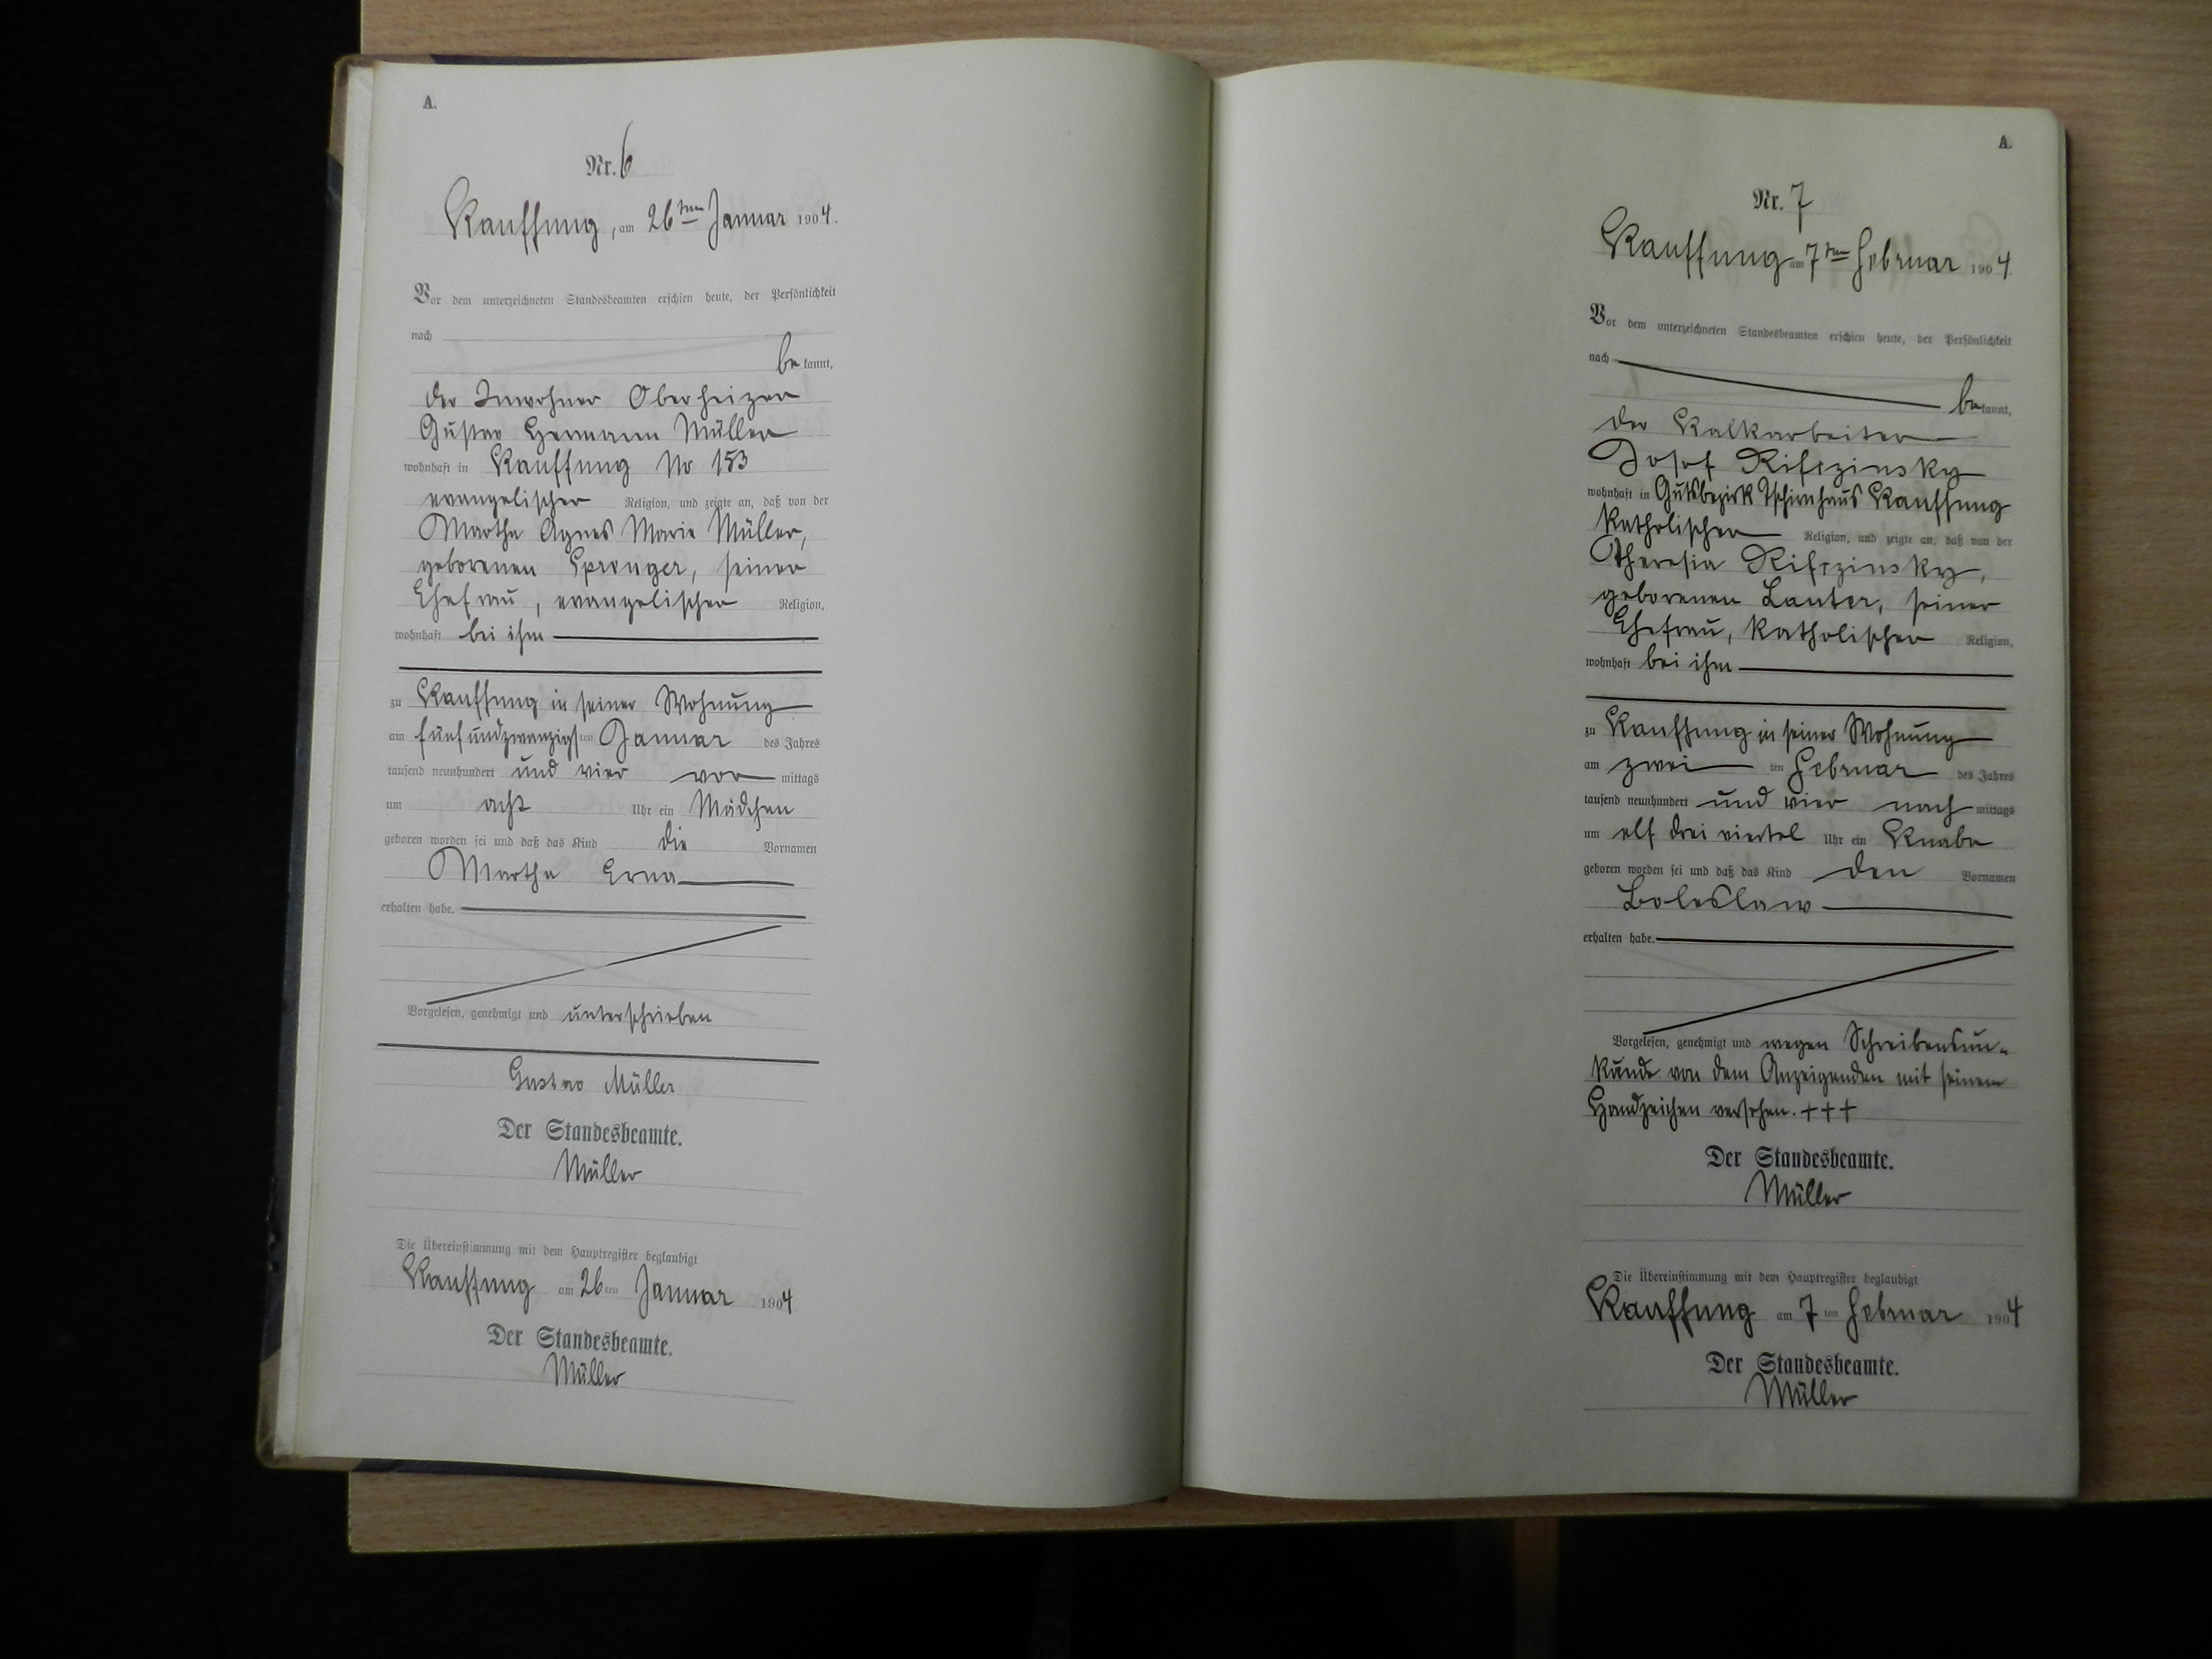 A.
Nr. 6
Kauffung, am 26ten Januar 1904.
Vor dem unterzeichneten Standesbeamten erschien heute, der Persönlichkeit
nach
be kannt,
der Inwohner Oberheizer
Gustav Hermann Müller
wohnhaft in Kauffung No 153
evangelischer Religion, und zeigte an, daß von der
Martha Agnes Marie Müller,
geborenen Sprenger, seiner
Ehefrau, evangelischer Religion,
wohnhaft bei ihm
zu Kauffung in seiner Wohnung
am fünfundzwanzigsten Januar des Jahres
tausend neunhundert und vier vor mittags
um acht Uhr ein Mädchen
geboren worden sei und daß das Kind die Vornamen
Martha Erna
erhalten habe.
Vorgelesen, genehmigt und unterschrieben
Gustav Müller
Der Standesbeamte.
Müller
Die Übereinstimmung mit dem Hauptregister beglaubigt
Kauffung am 26ten Januar 1904
Der Standesbeamte.
Müller
A.
Nr. 7
Kauffung am 7ten Februar 1904.
Vor dem unterzeichneten Standesbeamten erschien heute, der Persönlichkeit
nach
be kannt,
der Kalkarbeiter
Josef
wohnhaft in Gutsbezirk Tschirnhaus Kauffung
katholischer Religion, und zeigte an, daß von der
Theresia
geborenen Lauter, seiner
Ehefrau, katholischer Religion,
wohnhaft bei ihm
zu Kauffung in seiner Wohnung
am zwei ten Februar des Jahres
tausend neunhundert und vier nach mittags
um elf drei viertel Uhr ein Knabe
geboren worden sei und daß das Kind den Vornamen
Boleslaw
erhalten habe.
Vorgelesen, genehmigt und wegen Schreibensun-
kunde von dem Anzeigenden mit seinem
Handzeichen versehen. +++
Der Standesbeamte.
Müller
Die Übereinstimmung mit dem Hauptregister beglaubigt
Kauffung am 7 ten Februar 1904
Der Standesbeamte.
Müller